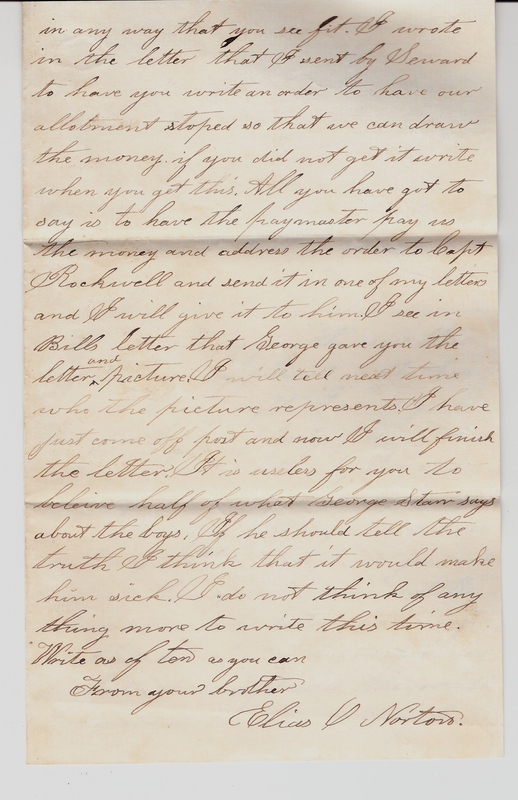 in any way that you see fit. I wrote
in the letter that I sent by Seward
to have you write an order to have our
allotment stoped so that we can draw
the money. if you did not get it write
when you get this. All you have got to
say is to have the paymaster pay us
the money and address the order to Capt
Rockwell and send it in one of my letters
and I will give it to him. I see in
Bills letter that George gave you the
letter and picture. I will tell next time
who the picture represents. I have
just come off post and now I will finish
the letter. It is useless for you to
beleive half of what George Starr says
about the boys, If he should tell the
truth I think that it would make
him sick. I do not think of any
thing more to write this time.
Write as of ten as you can
From your brother
Elias C Norton.